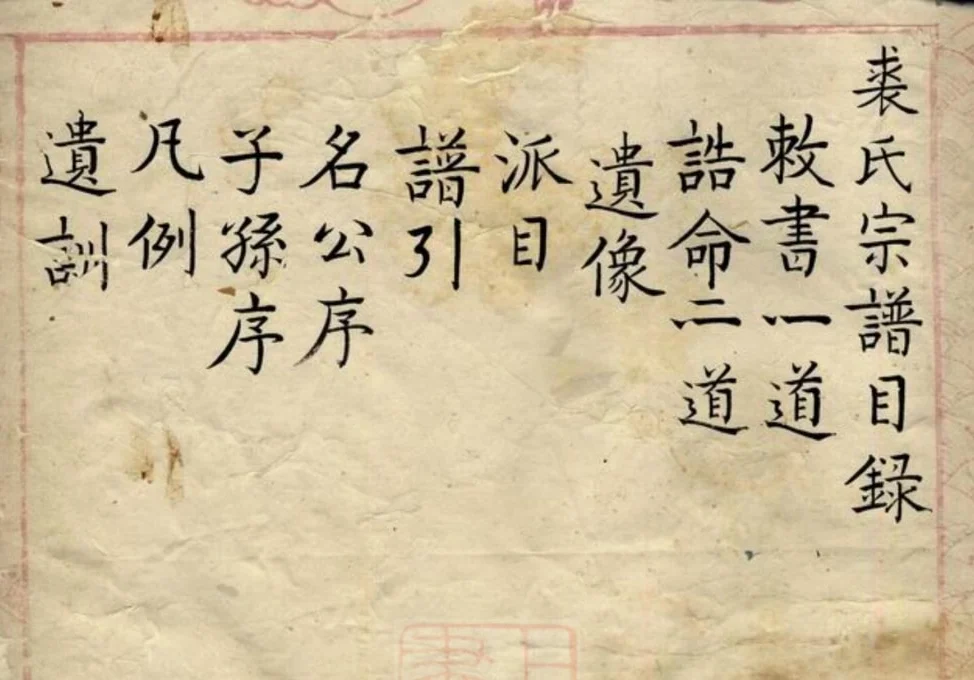 裘氏宗譜目録
敕書一道
誥命二道
遺像
派目
譜引
名公序
子孫序
凡例
遺訓